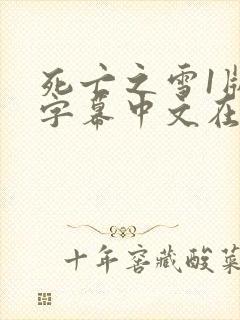 死亡之雪1版
字幕中文在
十年窖藏酸菜